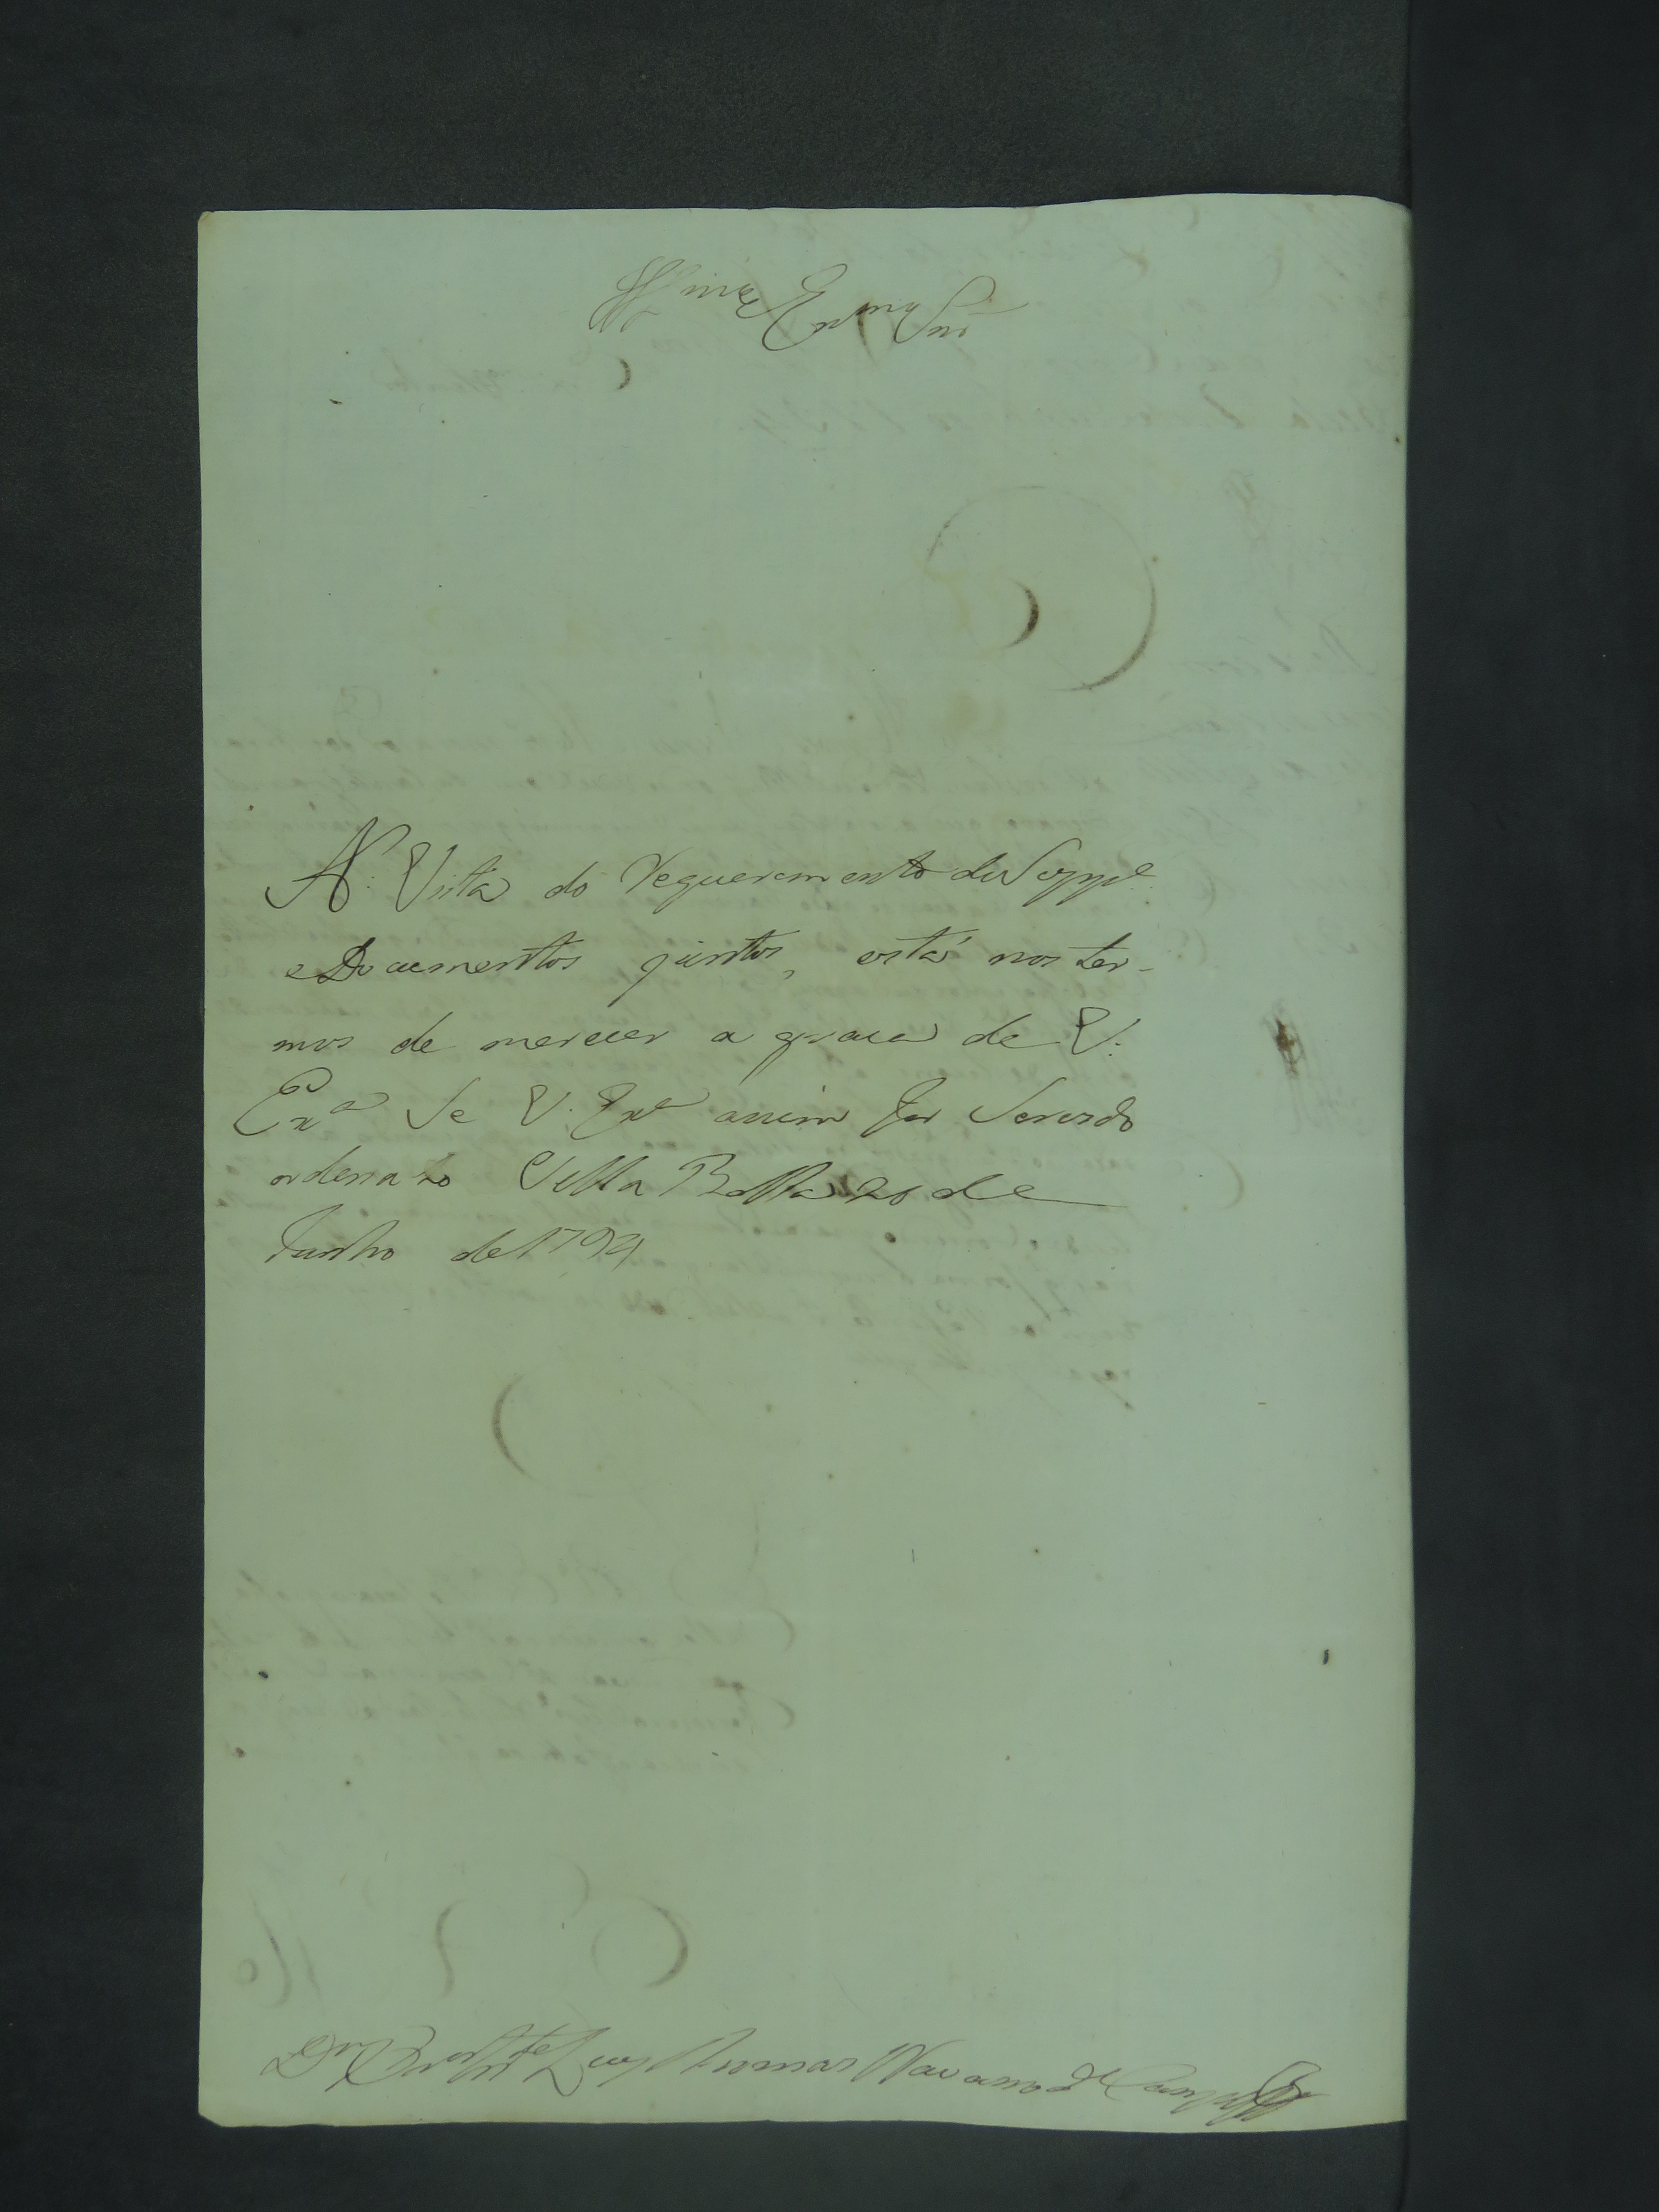 Illmo e Exmo Snr
A' Vista do Requerimento do Suppe
e Documentos juntos, está nos ter-
mos de merecer a graca de V.
Exa Se V. Exa assim for Servido
ordenalo Villa Bella 20 de
Junho de 1794
Luiz Thomas Navarro de Campos